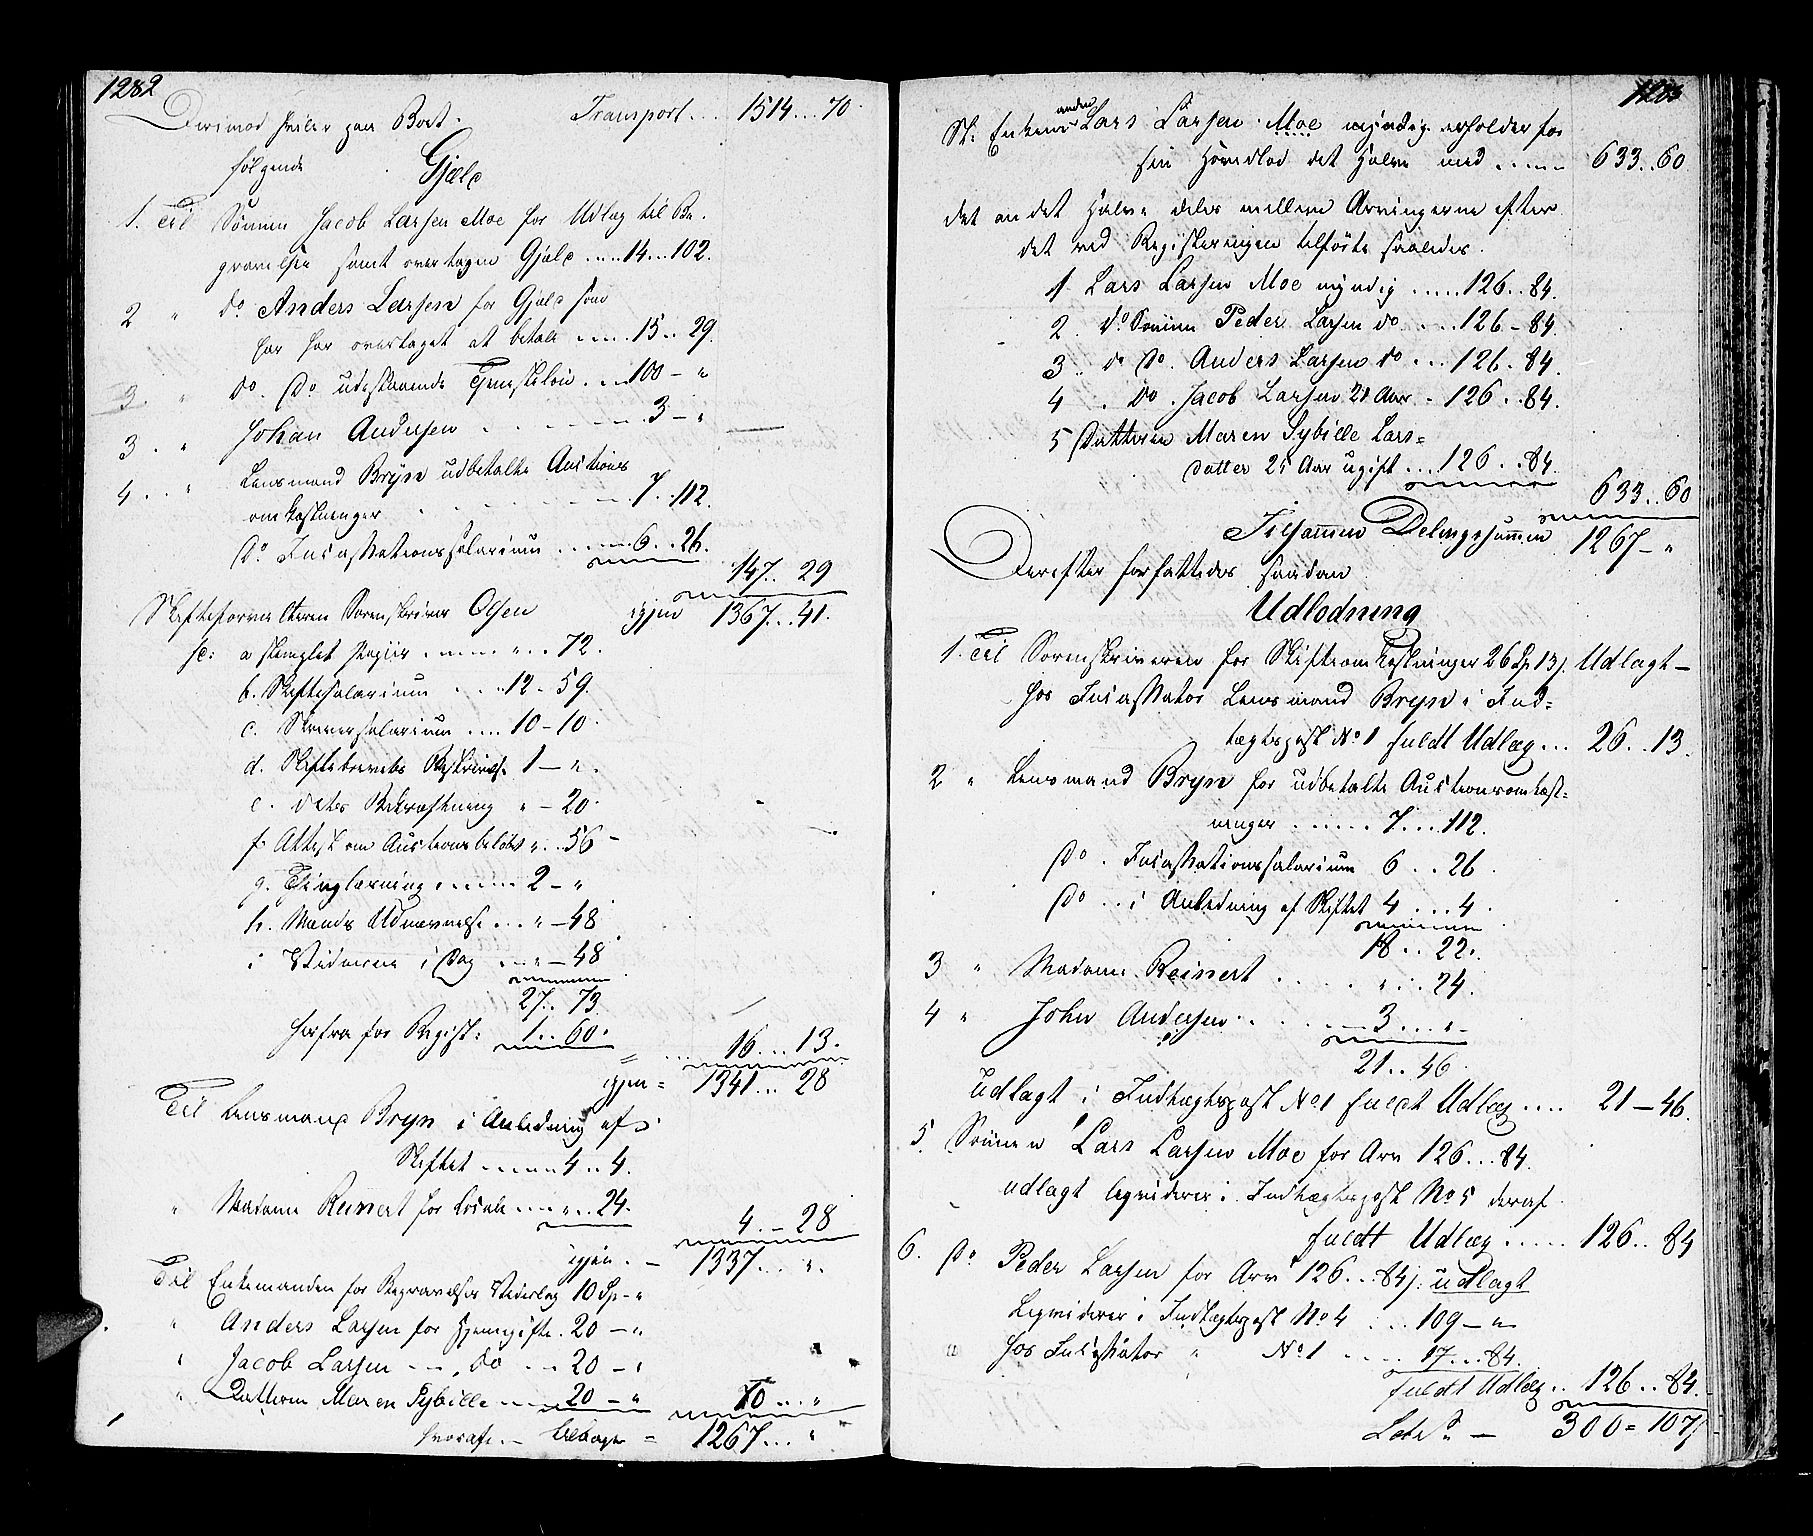 1282
Derimod hviler paa Boet. Transport... 1514...70.
følgende Gjæld
1. Til Sønnen Jacob Larsen Moe for Udlæg til Be-
gravelsen samt overtagen Gjæld ....14...102.
2 " do Anders Larsen for Gjæld som
har overtaget at betale ..... 15..29.
3. " do. Do. udestaaende Tjenesteløn ... 100 - "
3 . " Johan Andersen ........ 3 - "
4 .. " Lensmand Bryn udbetalte Auctions
omkostninger ........ 7...112.
Do Incassationssalarium ...... 6..26.
147.. 29
Skifteforvalteren Sorenskriver Olsen igjen 1367...41.
sc: a stemplet Papiir ...... " .. 72.
b. Skiftesalarium .... 12 - 59.
c. Skriversalarium .... 10 - 10.
d. Skiftebrevets Beskrivelse 1 - ".
e. dets Bekræftning " - 20.
f. Attest om Auctionsbeløbet " .. 56 -
g. Thinglæsning ....... 2 - "
h. Mænds Udnævnelse ... " - 48
i Vidnerne i Dag .... " - 48
27.. 73
herfra for Regist: 1.. 60. " ... 16...13.
igjen = 1341... 28
Til Lensmand Bryn i Anledning af
Skiftet ...... 4..4.
" Madame Reinert for Locale .... " .. 24.
4. - 28
igjen . - 1337... ".
Til Enkemanden for Begravelses Vederlag 10 Sp - "
" Anders Larsen for Hjemgifte. 20 - "
" Jacob Larsen ... do ... 20 - "
" Datteren Maren Sybille .... 20 - " 70 ... "
hvoraf. - beholden = 1267... "
1283
St: Enkemanden Lars Larsen Moe myndig erholder for
sin Hovedlod det Halve med ...... 633..60
det andet Halve deles mellem Arvingerne efter
det ved Registeringen tilførte saaledes.
1 Lars Larsen Moe myndig ..... 126..84.
2. do Sønnen Peder Larsen do ... 126 - 84.
3 . do Do. Anders Larsen do ... 126 . 84.
4 . Do . Jacob Larsen 21 Aar . - 126 .. 84.
5 Datteren Maren Sybille Lars=
datter 25 Aar ugift ... 126 .. 84.
633..60
Tilsammen Delingssummen 1267 - "
Derefter forfattedes saadan
Udlodning
1. Til Sorenskriveren for Skifteomkostninger 26 Sp 13 s. Udlagt -
hos Incassator Lensmand Bryn i Ind=
tægtspost No 1 fuldt Udlæg ... 26 .. 13.
2 " Lensmand Bryn for udbetalte Auctionsomkost=
ninger ...... 7....112.
Do . Incassationssalarium 6 ... 26
Do .. i Anledning af Skiftet 4 .... 4 .
18 .. 22.
3 " Madame Reinert ..... " ... 24.
4 " John Andersen ...... 3 .... " -
21 .. 46.
Udlagt i Indtægtspost No 1 fuldt Udlæg .... 21 - 46.
5. Sønnen Lars Larsen Moe for Arv 126...84.
udlagt liqviderer i Indtægtspost No 5 deraf
fuldt Udlæg ..... 126.. 84
6. Do Peder Larsen for Arv 126...84 s. udlagt
Liqviderer i Indtægtspost No 4 ... 109 - "
hos Incassator " No 1 .... 17...84.
fuldt Udlæg .. 126 .. 84.
Lats. - 300 = 107 s